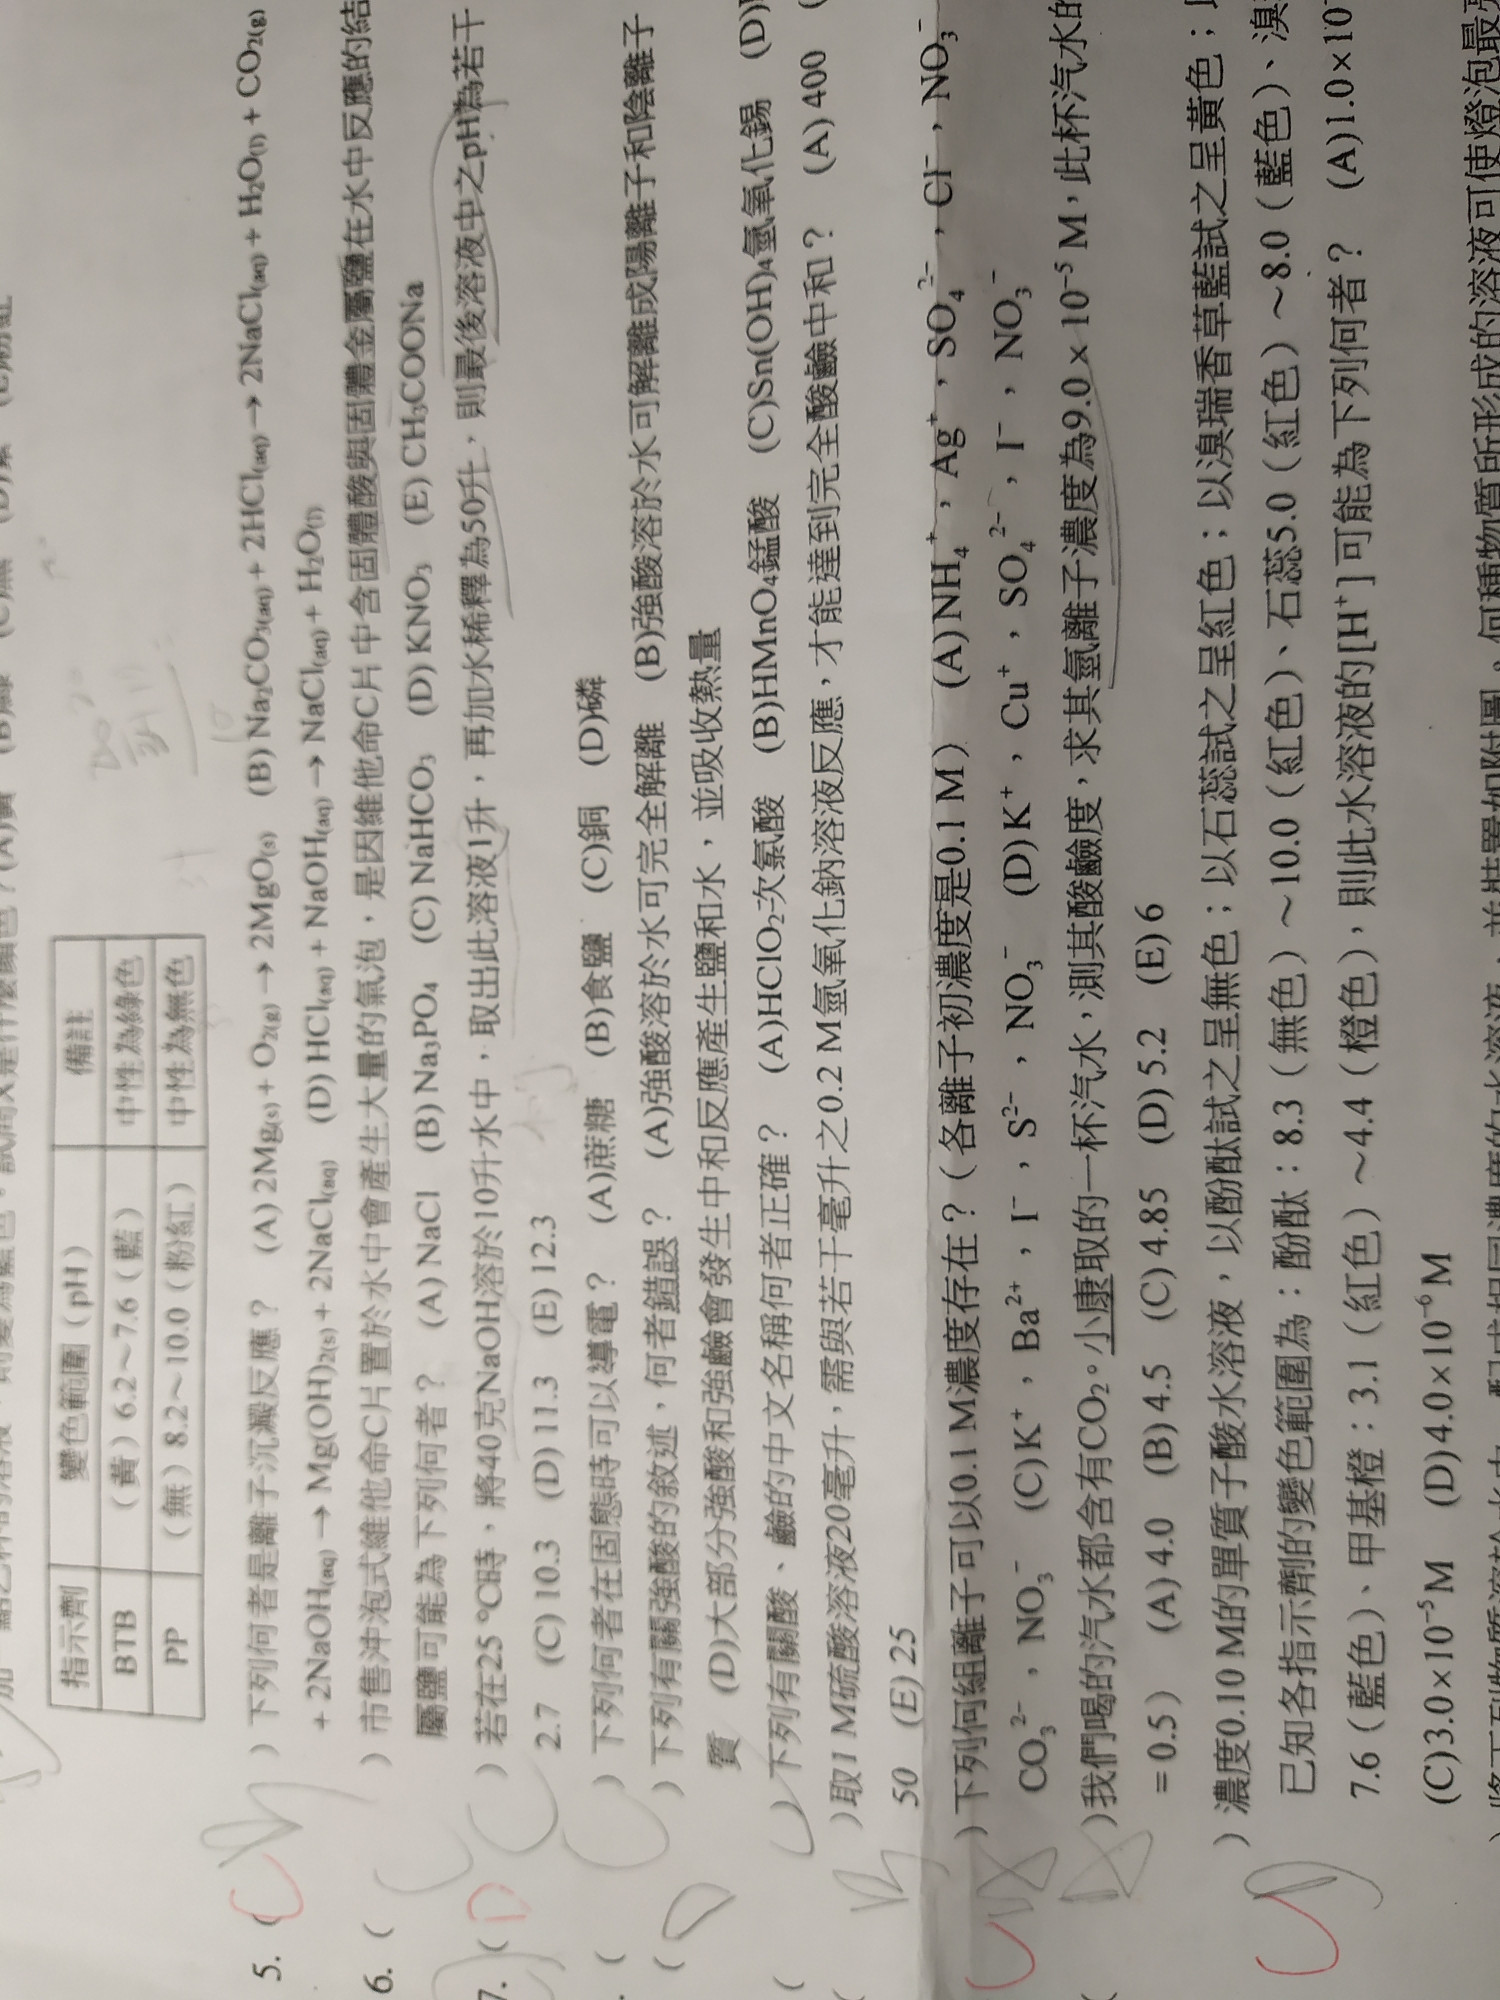 指示劑 變色範圍（pH） 備註
BTB （黃）6.2～7.6（藍） 中性為綠色
PP （無）8.2～10.0（粉紅） 中性為無色
5. ( ) 下列何者是離子沉澱反應？ (A) 2Mg(s) + O2(g) → 2MgO(s) (B) Na2CO3(aq) + 2HCl(aq) → 2NaCl(aq) + H2O(l) + CO2(g)
+ 2NaOH(aq) → Mg(OH)2(s) + 2NaCl(aq) (D) HCl(aq) + NaOH(aq) → NaCl(aq) + H2O(l)
6. ( ) 市售沖泡式維他命C片置於水中會產生大量的氣泡，是因維他命C片中含固體酸與固體金屬鹽在水中反應的結
屬鹽可能為下列何者？ (A) NaCl (B) Na3PO4 (C) NaHCO3 (D) KNO3 (E) CH3COONa
7. (D) 若在25 °C時，將40克NaOH溶於10升水中，取出此溶液1升，再加水稀釋為50升，則最後溶液中之pH為若干
2.7 (C) 10.3 (D) 11.3 (E) 12.3
( ) 下列何者在固態時可以導電？ (A)蔗糖 (B)食鹽 (C)銅 (D)磷
( ) 下列有關強酸的敘述，何者錯誤？ (A)強酸溶於水可完全解離 (B)強酸溶於水可解離成陽離子和陰離子
質 (D)大部分強酸和強鹼會發生中和反應產生鹽和水，並吸收熱量
( ) 下列有關酸、鹼的中文名稱何者正確？ (A)HClO2次氯酸 (B)HMnO4錳酸 (C)Sn(OH)4氫氧化錫 (D)
( ) 取1 M硫酸溶液20毫升，需與若干毫升之0.2 M氫氧化鈉溶液反應，才能達到完全酸鹼中和？ (A) 400 (
50 (E) 25
) 下列何組離子可以0.1 M濃度存在？（各離子初濃度是0.1 M） (A)NH4+，Ag+，SO4^2−，Cl−，NO3−
CO3^2−，NO3− (C)K+，Ba^2+，I−，S^2−，NO3− (D)K+，Cu+，SO4^2−，I−，NO3−
( ) 我們喝的汽水都含有CO2。小康取的一杯汽水，測其酸鹼度，求其氫離子濃度為9.0 × 10^−5 M，此杯汽水的
= 0.5） (A) 4.0 (B) 4.5 (C) 4.85 (D) 5.2 (E) 6
) 濃度0.10 M的單質子酸水溶液，以酚酞試之呈無色；以石蕊試之呈紅色；以溴瑞香草藍試之呈黃色；
已知各指示劑的變色範圍為：酚酞：8.3（無色）～10.0（紅色）、石蕊5.0（紅色）～8.0（藍色）、溴
7.6（藍色）、甲基橙：3.1（紅色）～4.4（橙色），則此水溶液的[H+]可能為下列何者？ (A)1.0×10
(C)3.0×10^−5 M (D)4.0×10^−6 M